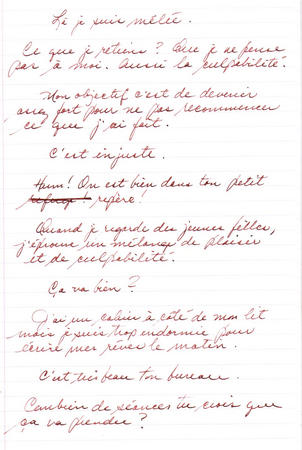 Là je suis mêlée.
Ce que je retiens ? Que je ne pense
pas à moi. Aussi la culpabilité.
Mon objectif c'est de devenir
assez fort pour ne pas recommencer
ce que j'ai fait.
C'est injuste.
Hum! On est bien dans ton petit
refuge! repère!
Quand je regarde des jeunes filles,
j'éprouve un mélange de plaisir
et de culpabilité.
Ça va bien ?
J'ai un cahier à côté de mon lit
mais je suis trop endormie pour
écrire mes rêves le matin.
C'est très beau ton bureau.
Combien de séances tu crois que
ça va prendre ?